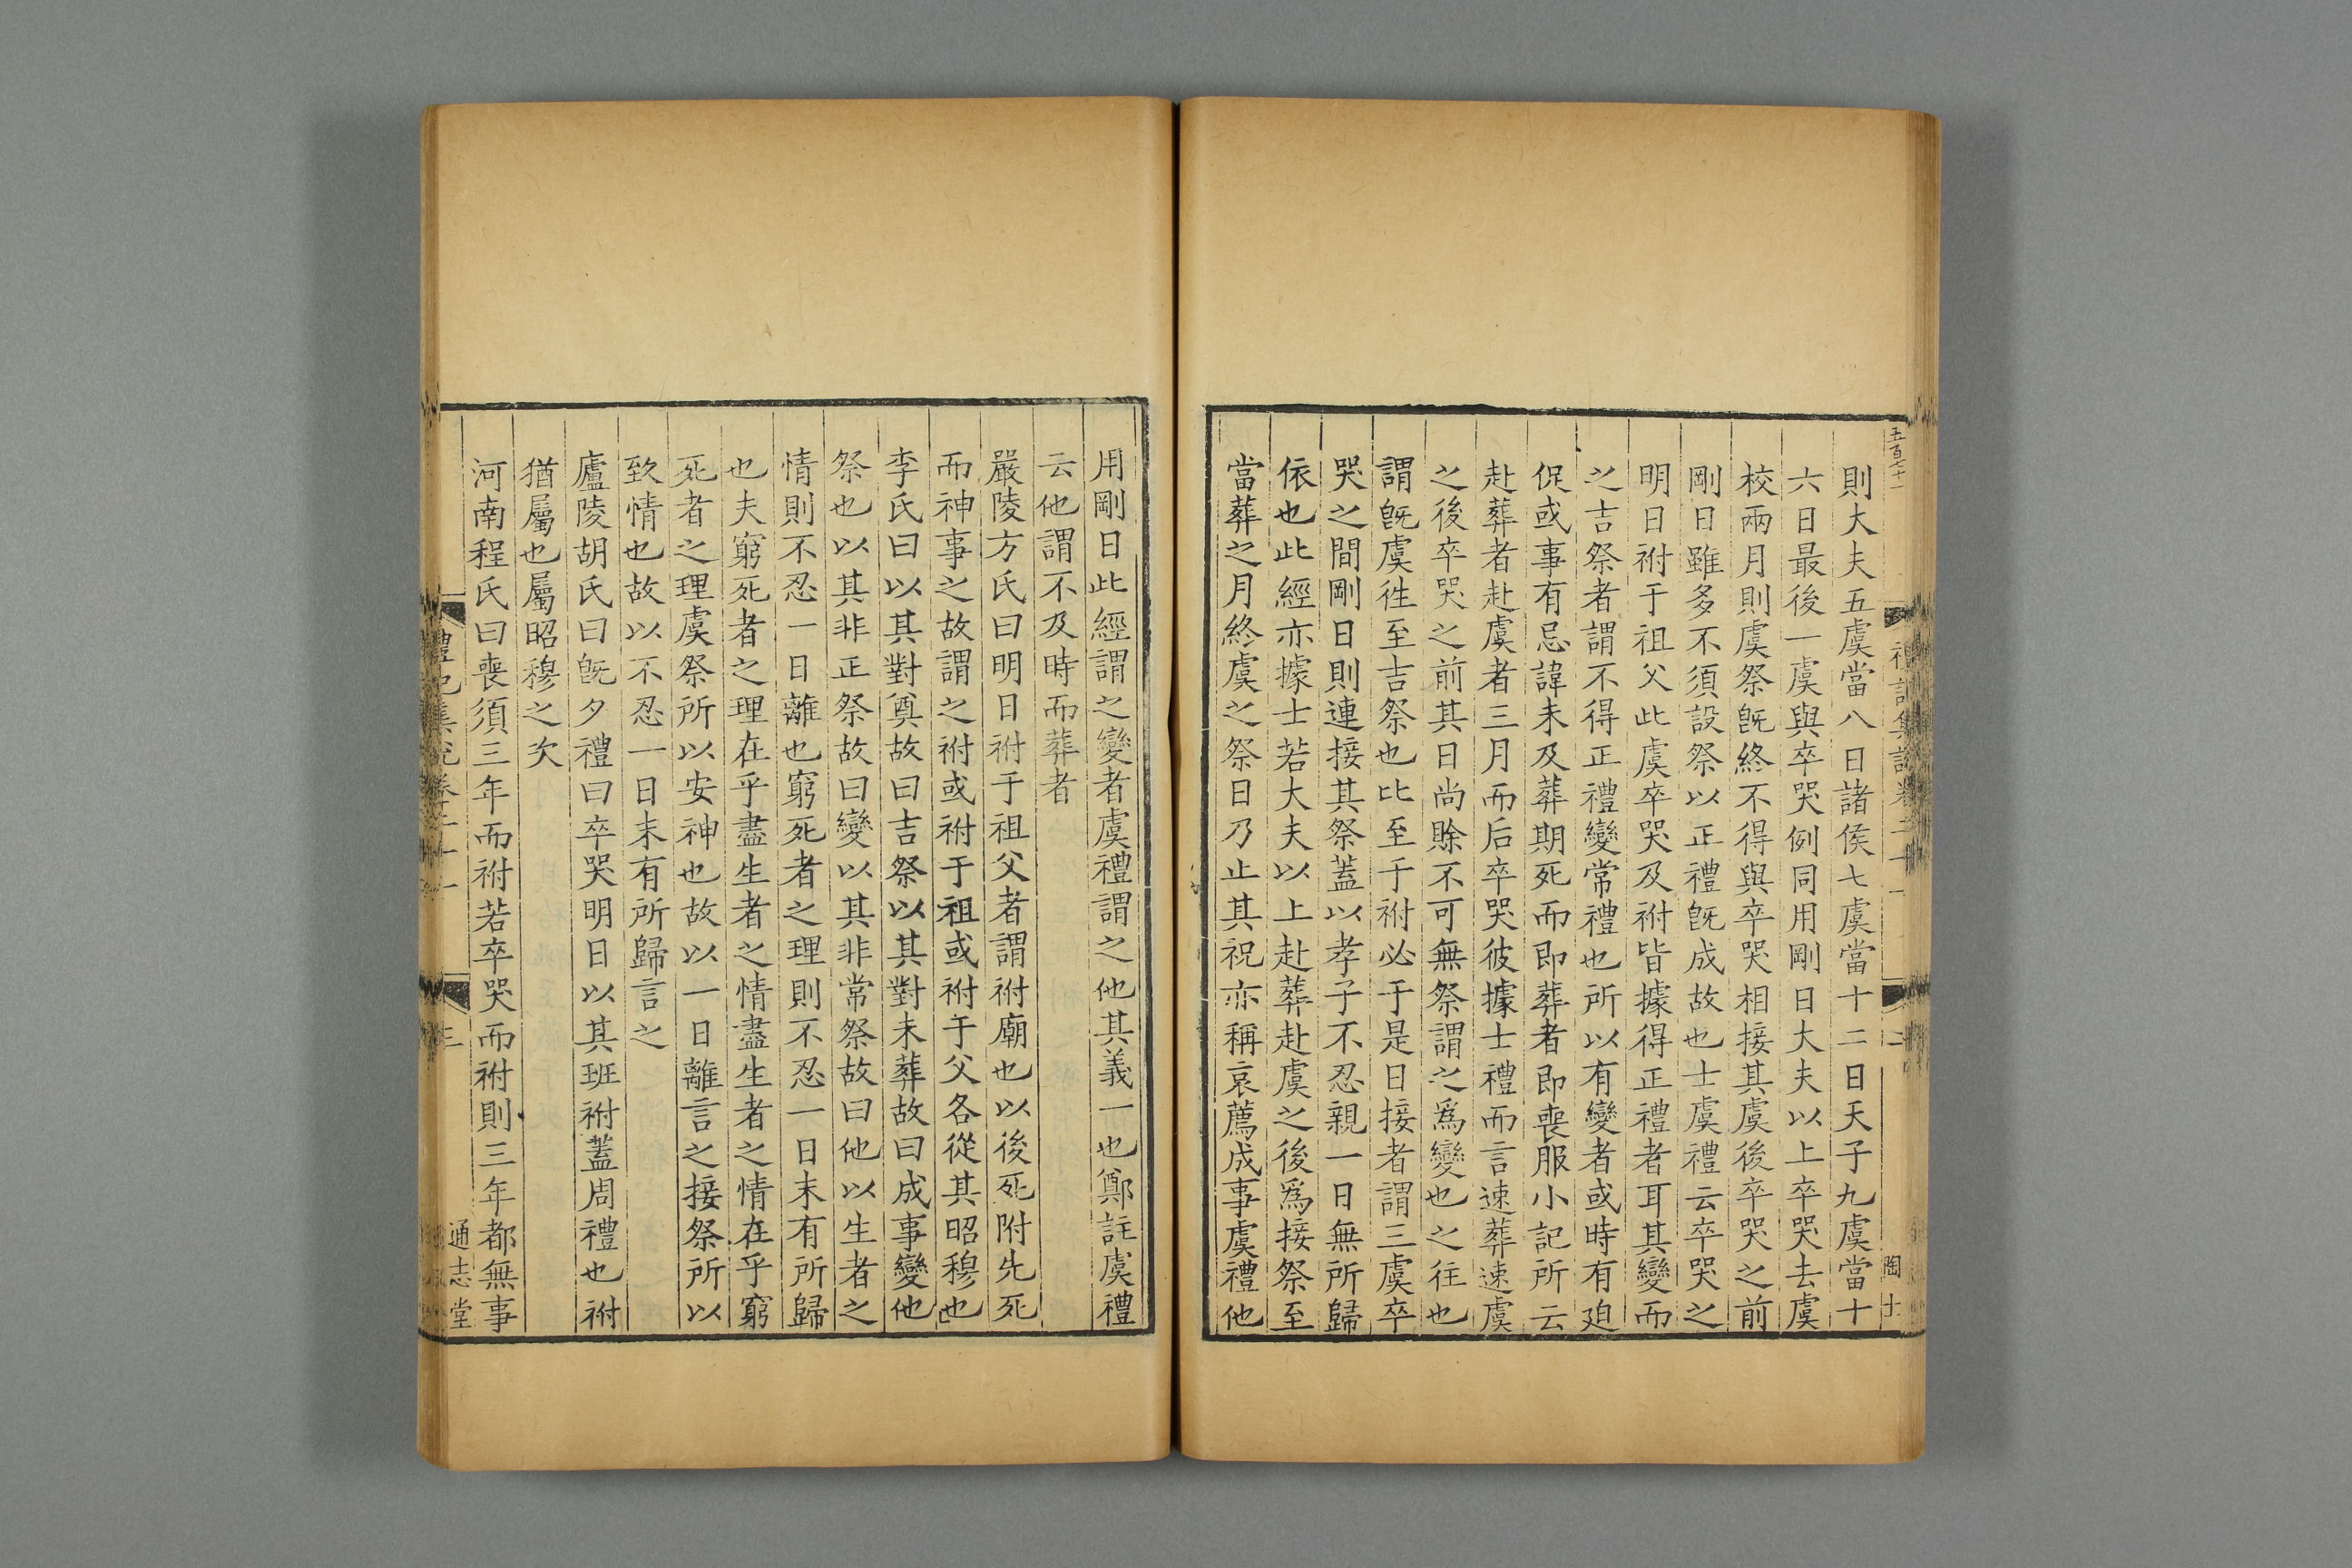 五百七十一
則大夫五虞當八日諸侯七虞當十二日天子九虞當十
六日最後一虞與卒哭例同用剛日大夫以上卒哭去虞
校兩月則虞祭旣終不得與卒哭相接其虞後卒哭之前
剛日雖多不須設祭以正禮旣成故也士虞禮云卒哭之
明日祔于祖父此虞卒哭及祔皆據得正禮者耳其變而
之吉祭者謂不得正禮變常禮也所以有變者或時有迫
促或事有忌諱未及葬期死而即葬者即喪服小記所云
赴葬者赴虞者三月而后卒哭彼據士禮而言速葬速虞
之後卒哭之前其日尚賒不可無祭謂之爲變也之往也
謂旣虞徃至吉祭也比至于祔必于是日接者謂三虞卒
哭之間剛日則連接其祭蓋以孝子不忍親一日無所歸
依也此經亦據士若大夫以上赴葬赴虞之後爲接祭至
當葬之月終虞之祭日乃止其祝亦稱哀薦成事虞禮他
用剛日此經謂之變者虞禮謂之他其義一也鄭註虞禮
云他謂不及時而葬者
嚴陵方氏曰明日祔于祖父者謂祔廟也以後死附先死
而神事之故謂之祔或祔于祖或祔于父各從其昭穆也
李氏曰以其對奠故曰吉祭以其對未葬故曰成事變他
祭也以其非正祭故曰變以其非常祭故曰他以生者之
情則不忍一日離也窮死者之理則不忍一日末有所歸
也夫窮死者之理在乎盡生者之情盡生者之情在乎窮
死者之理虞祭所以安神也故以一日離言之接祭所以
致情也故以不忍一日末有所歸言之
廬陵胡氏曰旣夕禮曰卒哭明日以其班祔蓋周禮也祔
猶屬也屬昭穆之次
河南程氏曰喪須三年而祔若卒哭而祔則三年都無事
禮記集說卷二十一
三
通志堂